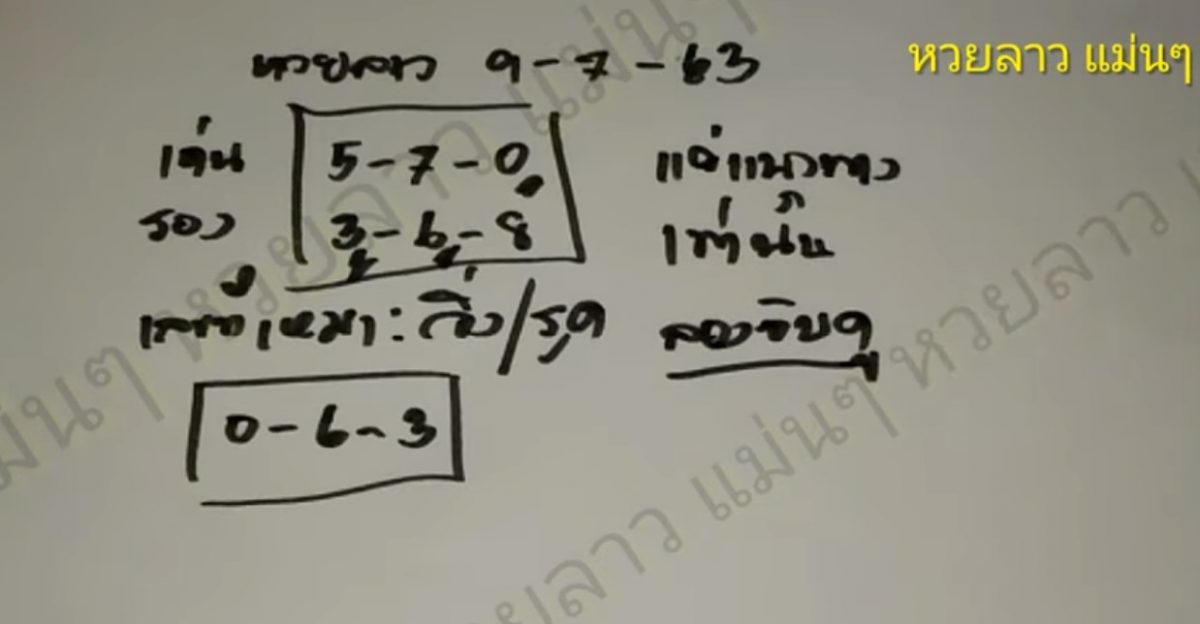 หวยลาว แม่นๆ
หวยลาว 9-7-63
เด่น 5-7-0 แค่แนวทาง
รอง 3-6-8 เท่านั้น
เหมา: วิ่ง/รูด ลองจับดู
0-6-3
หวยลาว แม่นๆ หวยลาว แม่นๆ